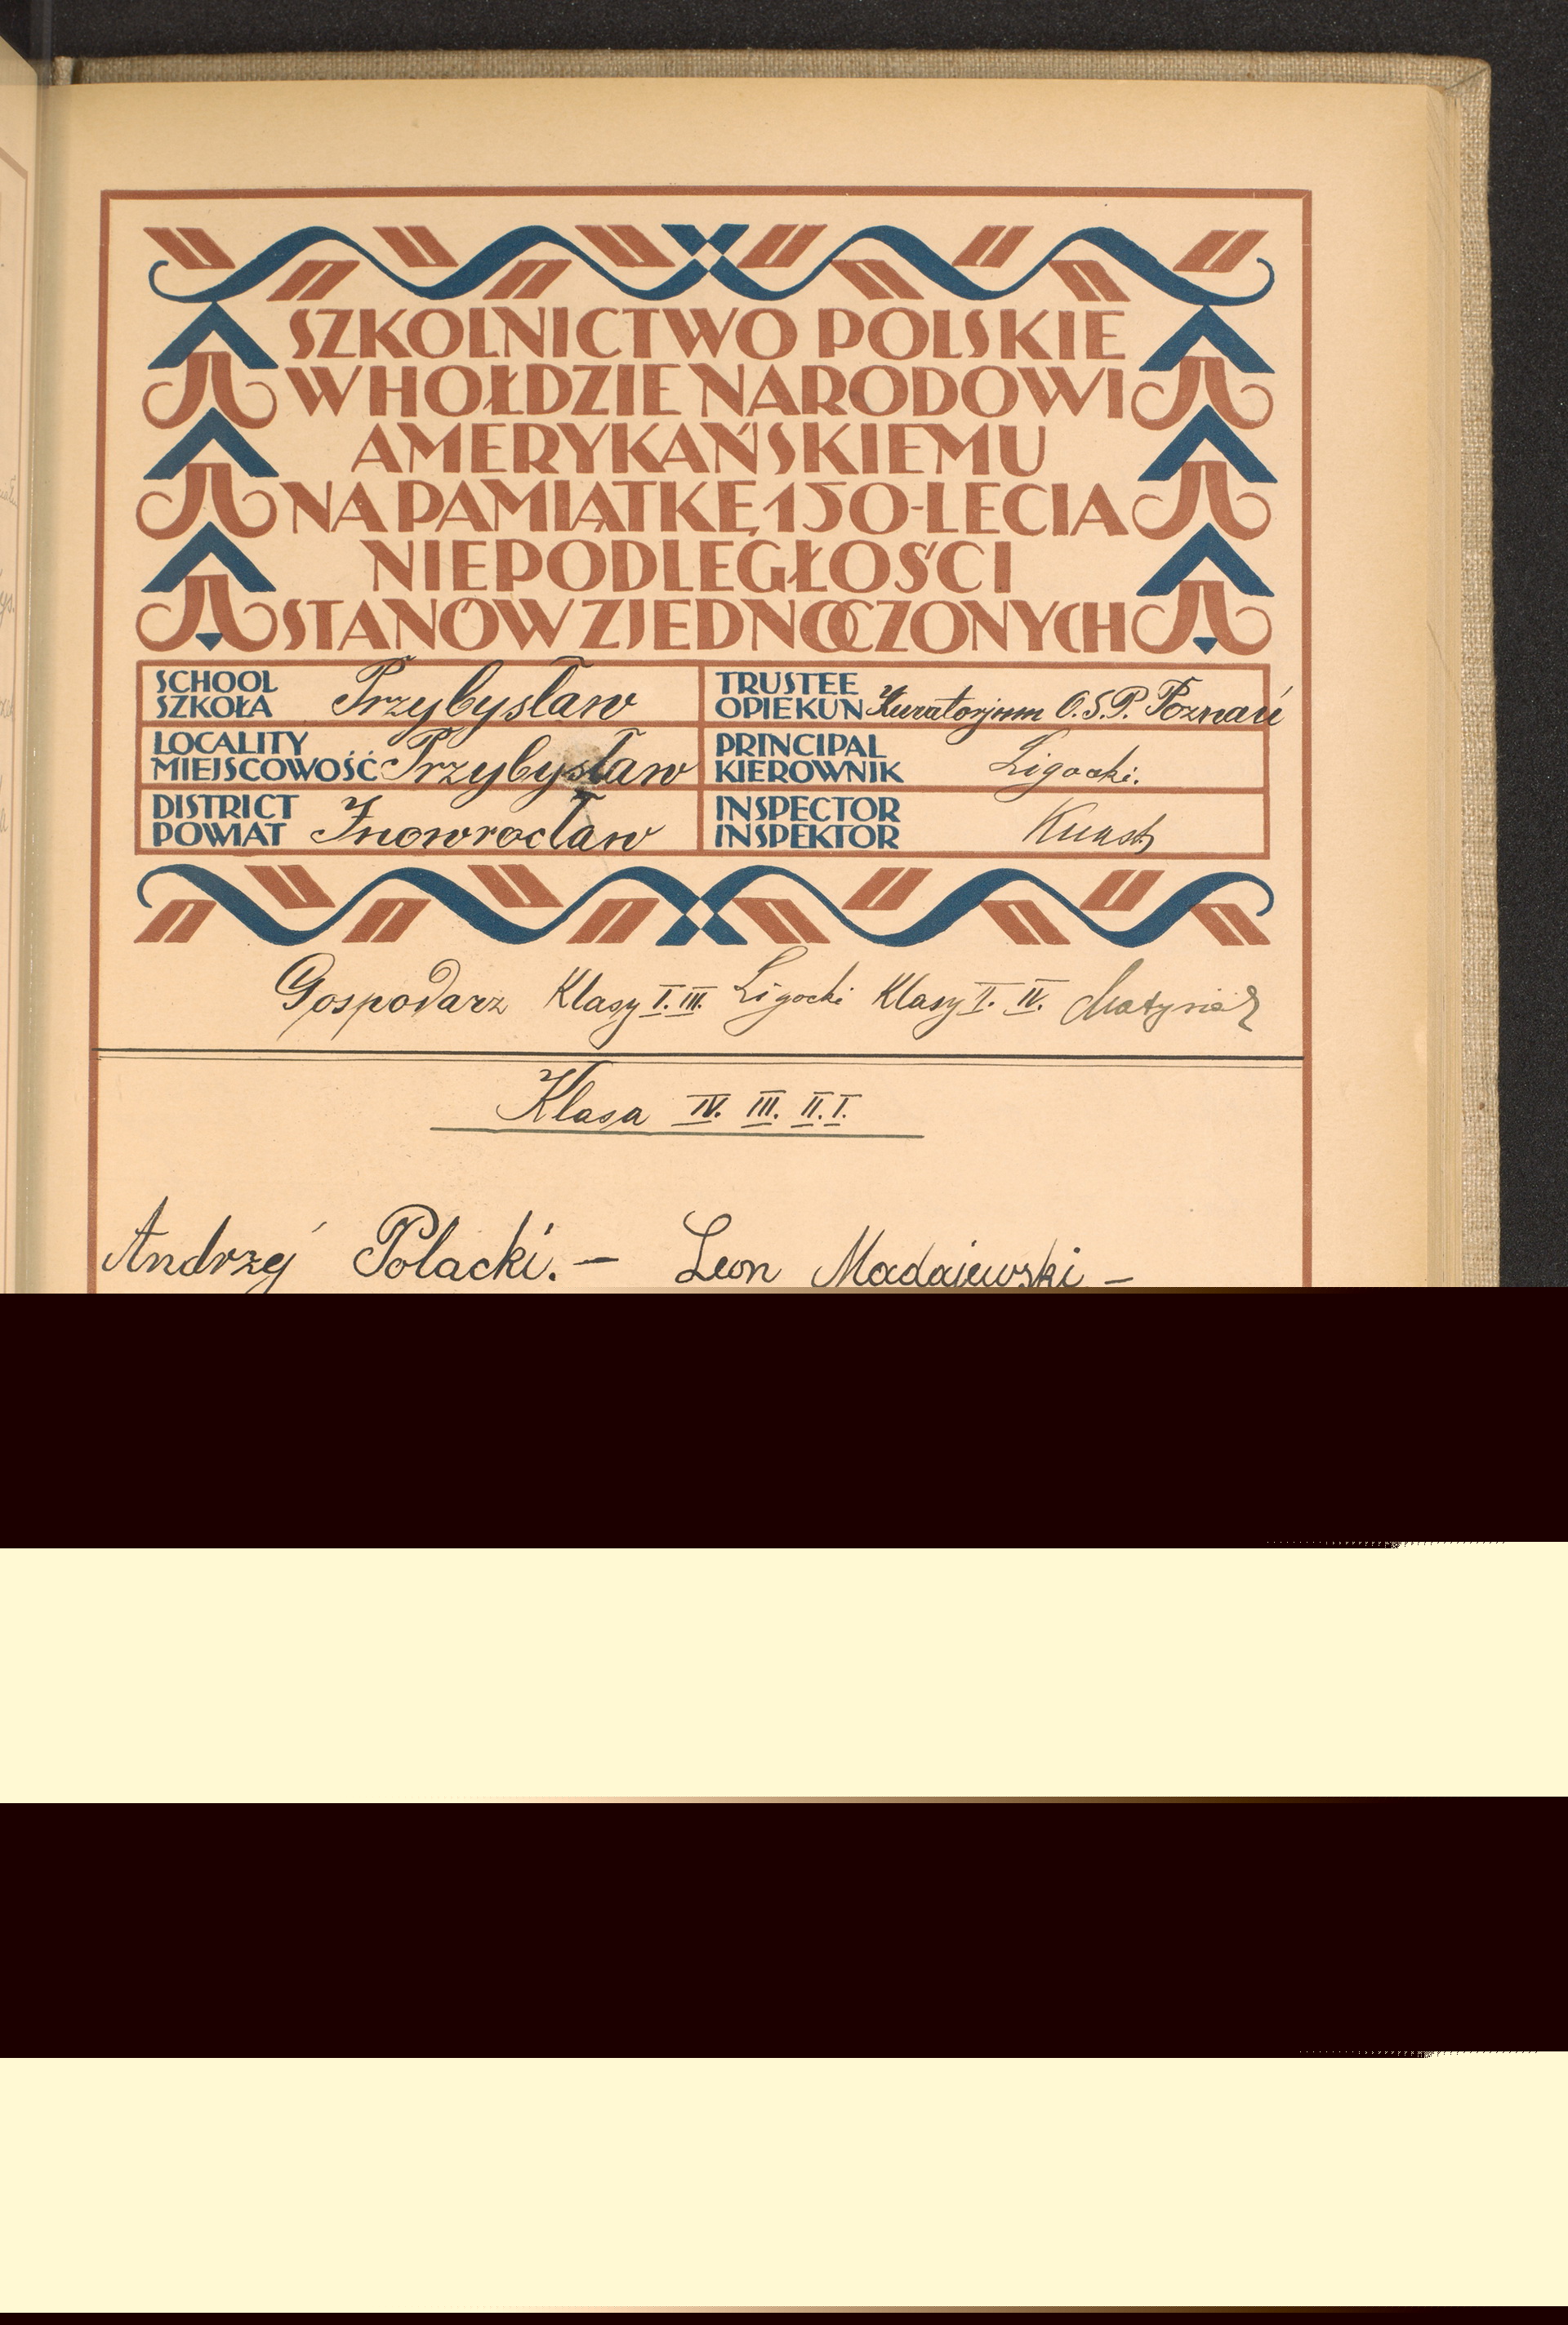 SZKOLNICTWO POLSKIE
W HOŁDZIE NARODOWI
AMERYKAŃSKIEMU
NA PAMIĄTKĘ 150-LECIA
NIEPODLEGŁOŚCI
STANÓW ZJEDNOCZONYCH
SCHOOL
SZKOŁA Przybysław
TRUSTEE
OPIEKUN Kuratorjum O.S.P. Poznań
LOCALITY
MIEJSCOWOŚĆ Przybysław
PRINCIPAL
KIEROWNIK Ligocki.
DISTRICT
POWIAT Inowrocław
INSPECTOR
INSPEKTOR
Gospodarz Klasy I. III. Ligocki Klasy II. IV. Matysiak
Klasa IV. III. II. I.
Andrzej Polacki. — Leon Madajewski —